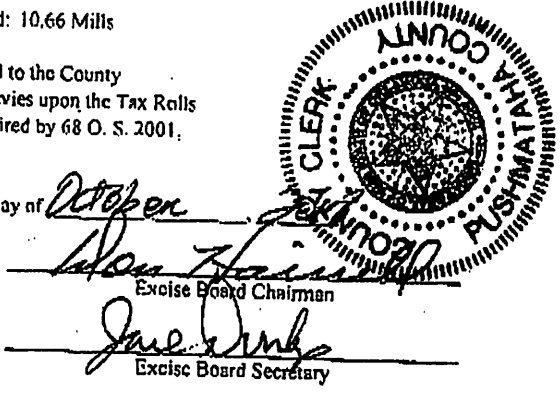 d: 10.66 Mills
l to the County
evies upon the Tax Rolls
ired by 68 O. S. 2001.
ay of October
Excise Board Chairman
Excise Board Secretary
COUNTY CLERK
PUSHMATAHA COUNTY